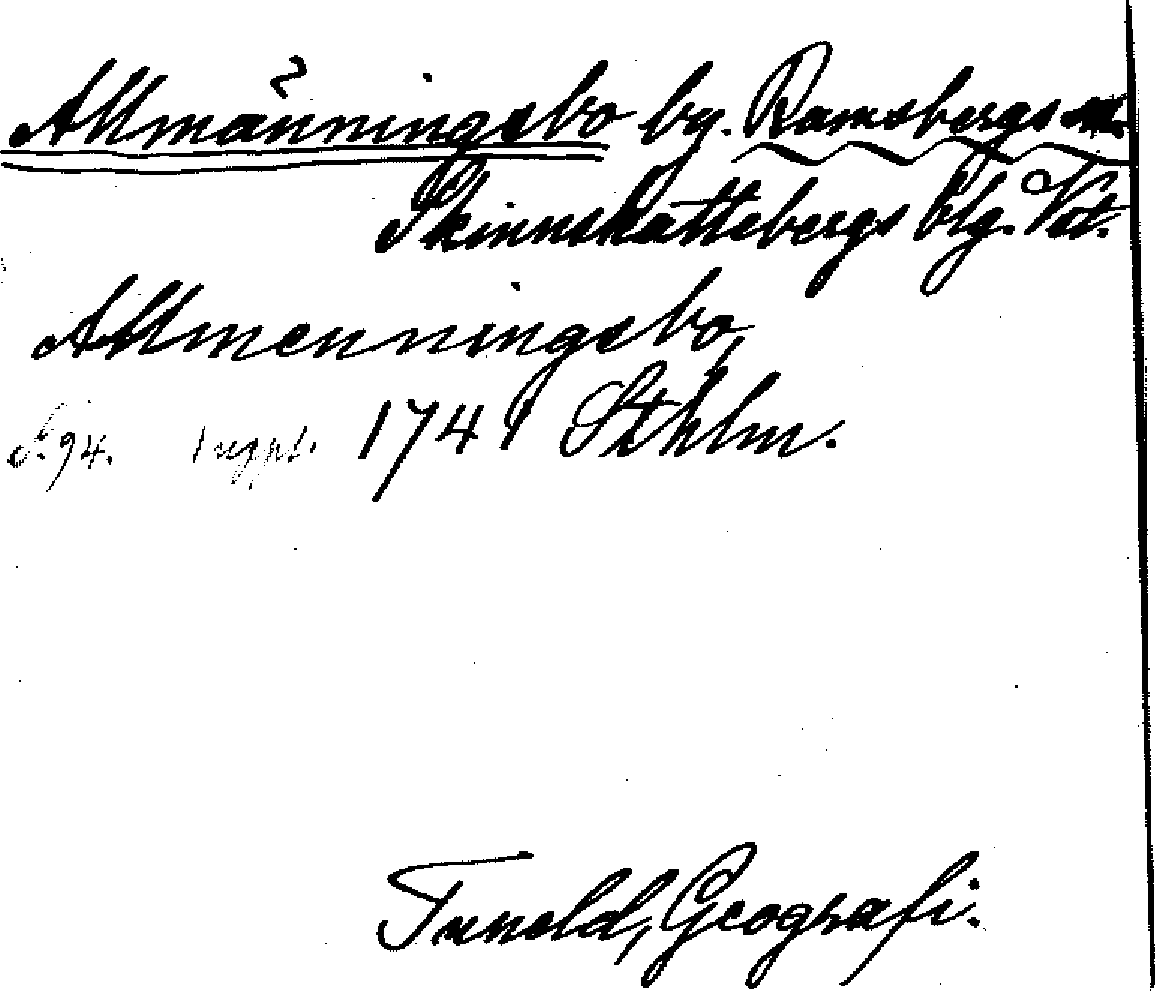 Allmänningsbo by. Ramsbergs sn.
Skinnskattebergs blg. Vst.
Allmenningsbo,
S. 94. 1 uppl. 1741 Sthlm.
Tuneld, Geografi.